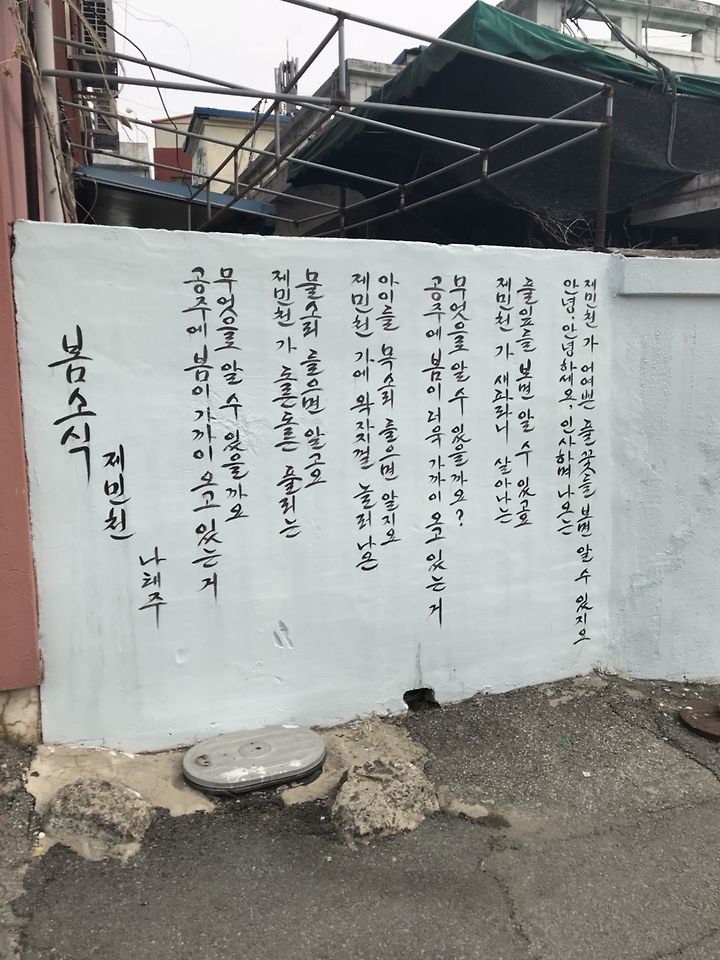 봄소식
제민천
나태주
공주에 봄이 가까이 오고 있는 거
무엇으로 알 수 있을까요
제민천 가 도른도른 풀리는
물소리 들으면 알고요
제민천 가에 왁자껄 놀러 나온
아이들 목소리 들으면 알지요
공주에 봄이 더욱 가까이 오고 있는 거
무엇으로 알 수 있을까요?
제민천 가 새파라니 살아나는
풀잎들 보면 알 수 있고요
안녕, 안녕하세요, 인사하며 나오는
제민천 가 어여쁜 풀꽃들 보면 알 수 있지요